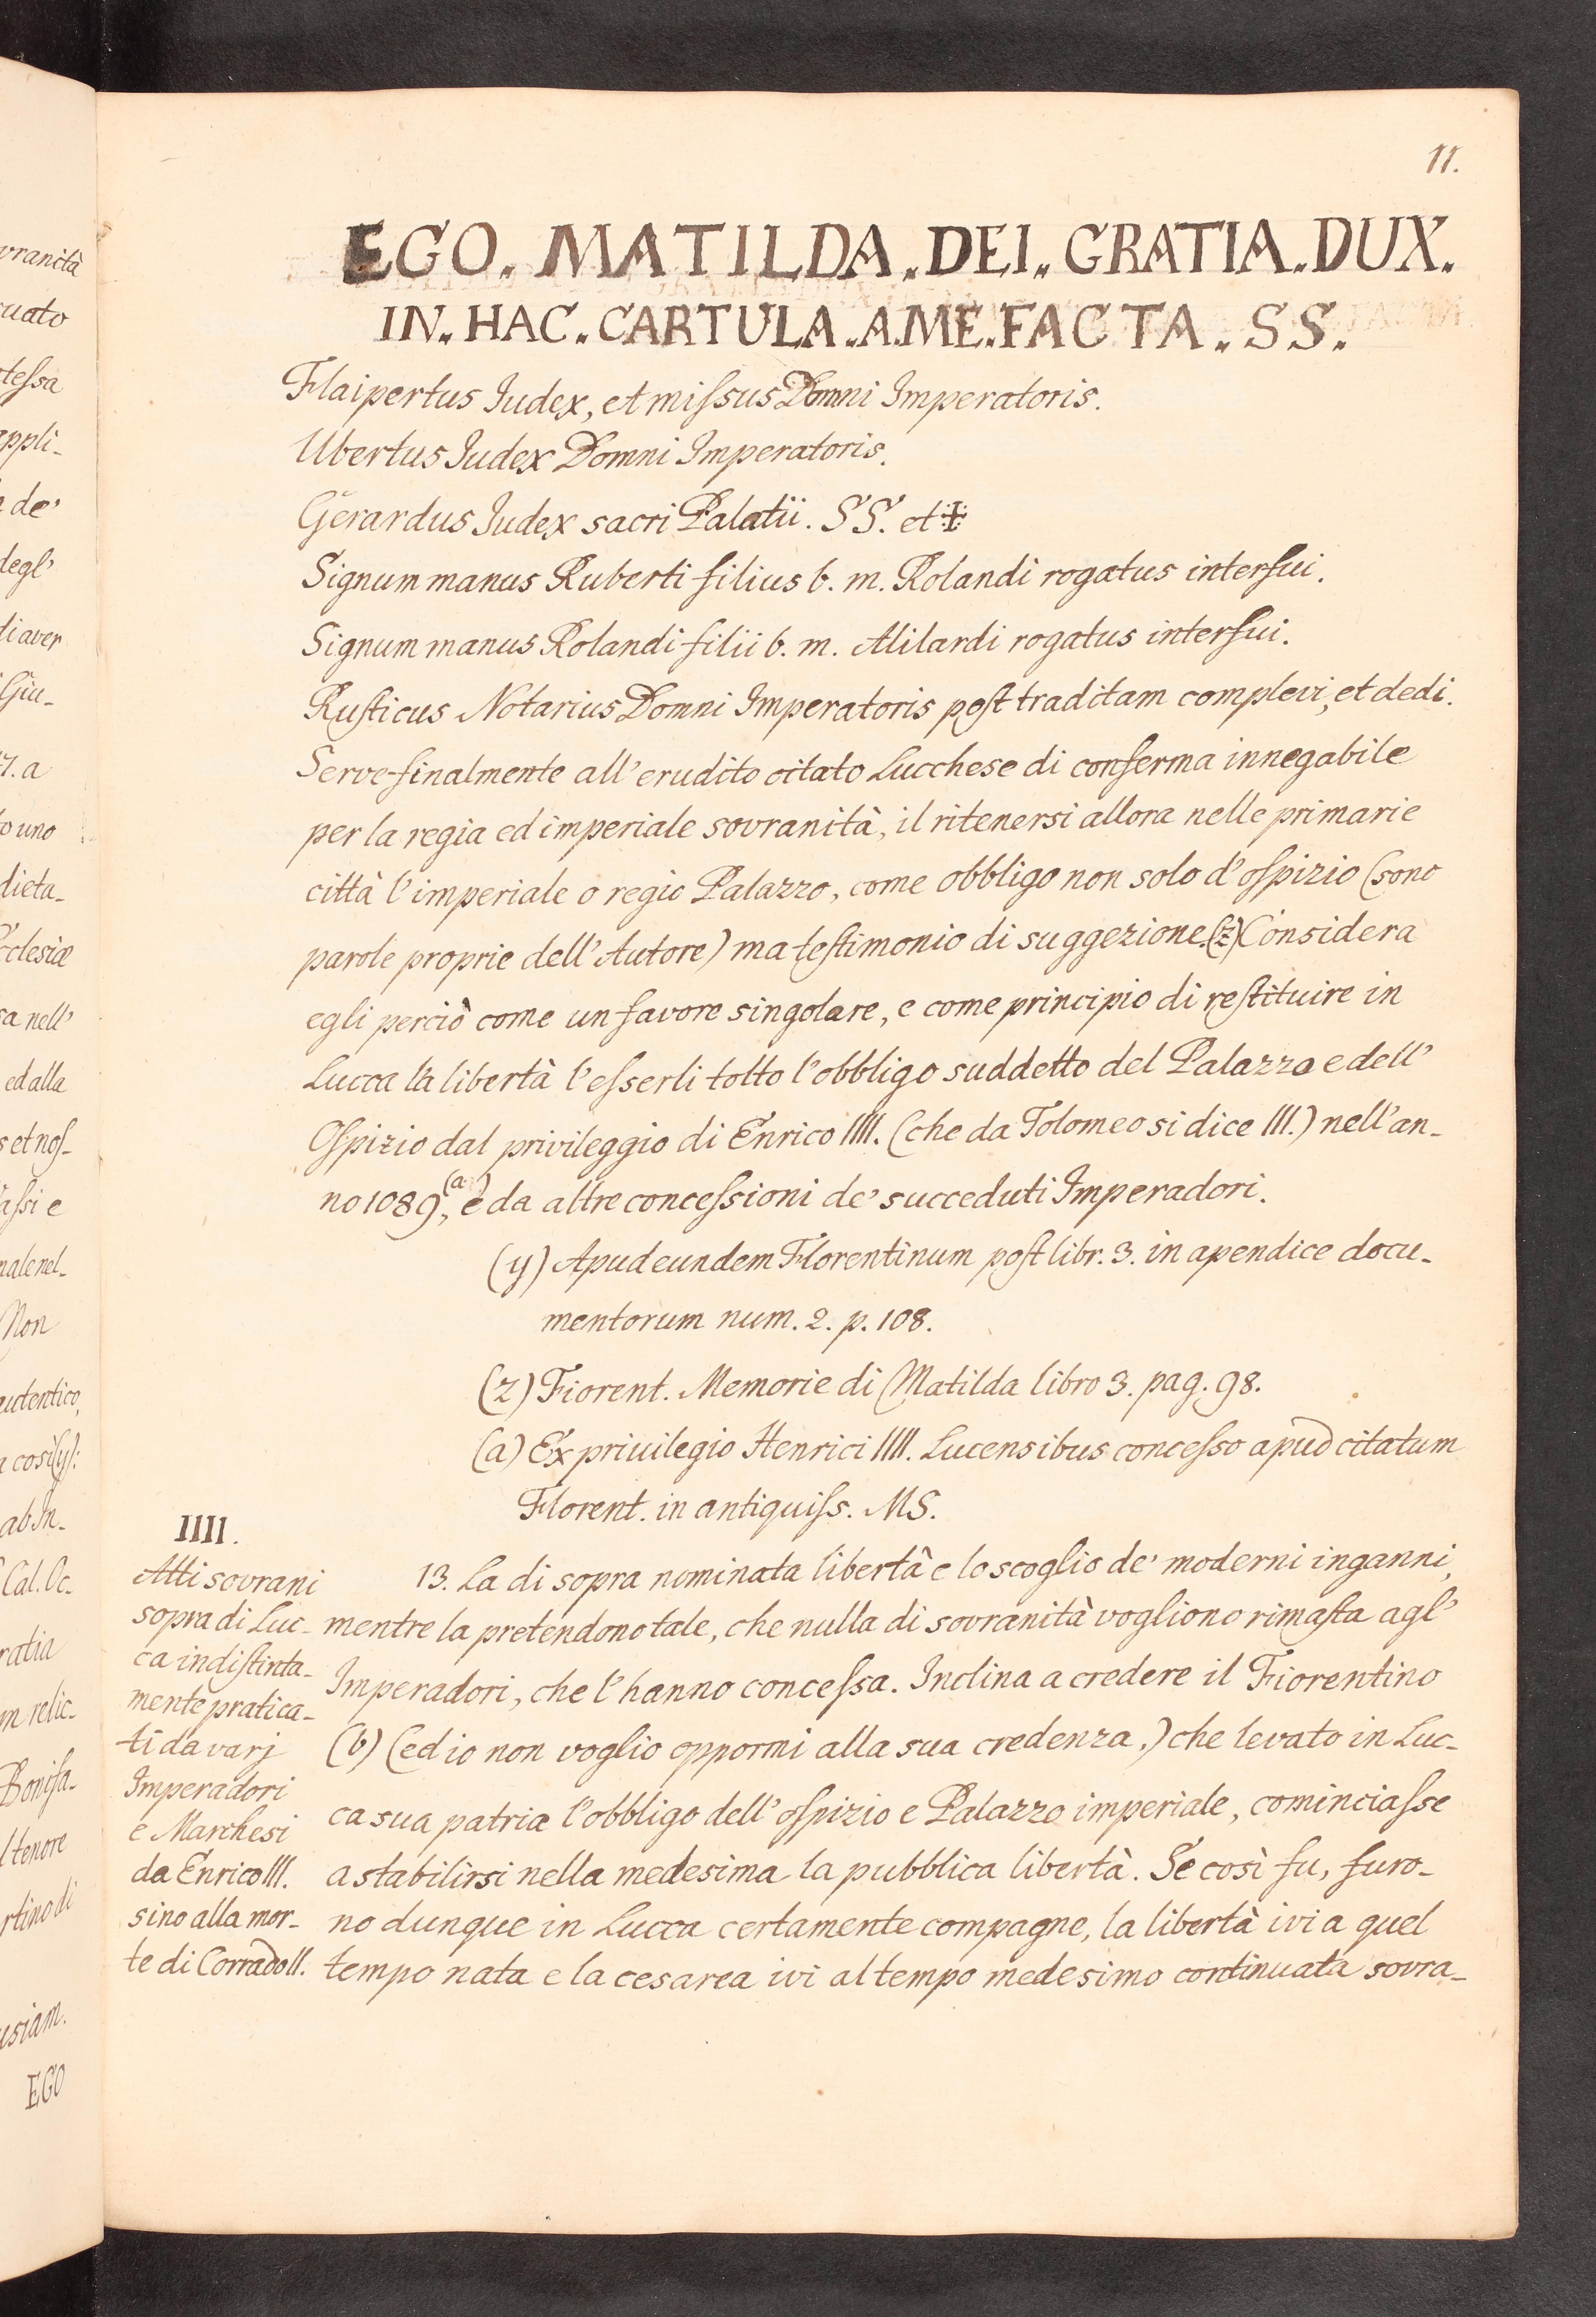 11.
EGO. MATILDA. DEI. GRATIA. DUX.
IN. HAC. CARTULA. A. ME. FACTA. SS.
Flaipertus Iudex, et missus Domni Imperatoris.
Ubertus Iudex Domni Imperatoris.
Gerardus Iudex sacri Palatii. SS. et ✠
Signum manus Ruberti filius b. m. Rolandi rogatus interfui.
Signum manus Rolandi filii b. m. Alilardi rogatus interfui.
Rusticus Notarius Domni Imperatoris post traditam complevi, et dedi.
Serve finalmente all' erudito citato Lucchese di conferma innegabile
per la regia ed imperiale sovranità, il ritenersi allora nelle primarie
città l' imperiale o regio Palazzo, come obbligo non solo d' ospizio (sono
parole proprie dell' Autore) ma testimonio di suggezione. (z) Considera
egli perciò come un favore singolare, e come principio di restituire in
Lucca la libertà l' esserli tolto l' obbligo suddetto del Palazzo e dell'
Ospizio dal privileggio di Enrico IIII. (che da Tolomeo si dice III.) nell' an-
no 1089, (a) e da altre concessioni de' succeduti Imperadori.
(y) Apud eundem Florentinum post libr. 3. in apendice docu-
mentorum num. 2. p. 108.
(z) Fiorent. Memorie di Matilda libro 3. pag. 98.
(a) Ex privilegio Henrici IIII. Lucensibus concesso apud citatum
Florent. in antiquiss. MS.
IIII.
Atti sovrani
sopra di Luc-
ca indistinta-
mente pratica-
ti da varj
Imperadori
e Marchesi
da Enrico III.
sino alla mor-
te di Corrado II.
13. La di sopra nominata libertà e lo scoglio de' moderni inganni,
mentre la pretendono tale, che nulla di sovranità vogliono rimasta agl'
Imperadori, che l' hanno concessa. Inclina a credere il Fiorentino
(b) (ed io non voglio oppormi alla sua credenza,) che levato in Luc-
ca sua patria l' obbligo dell' ospizio e Palazzo imperiale, cominciasse
a stabilirsi nella medesima la pubblica libertà. Se così fu, furo-
no dunque in Lucca certamente compagne, la libertà ivi a quel
tempo nata e la cesarea ivi al tempo medesimo continuata sovra-